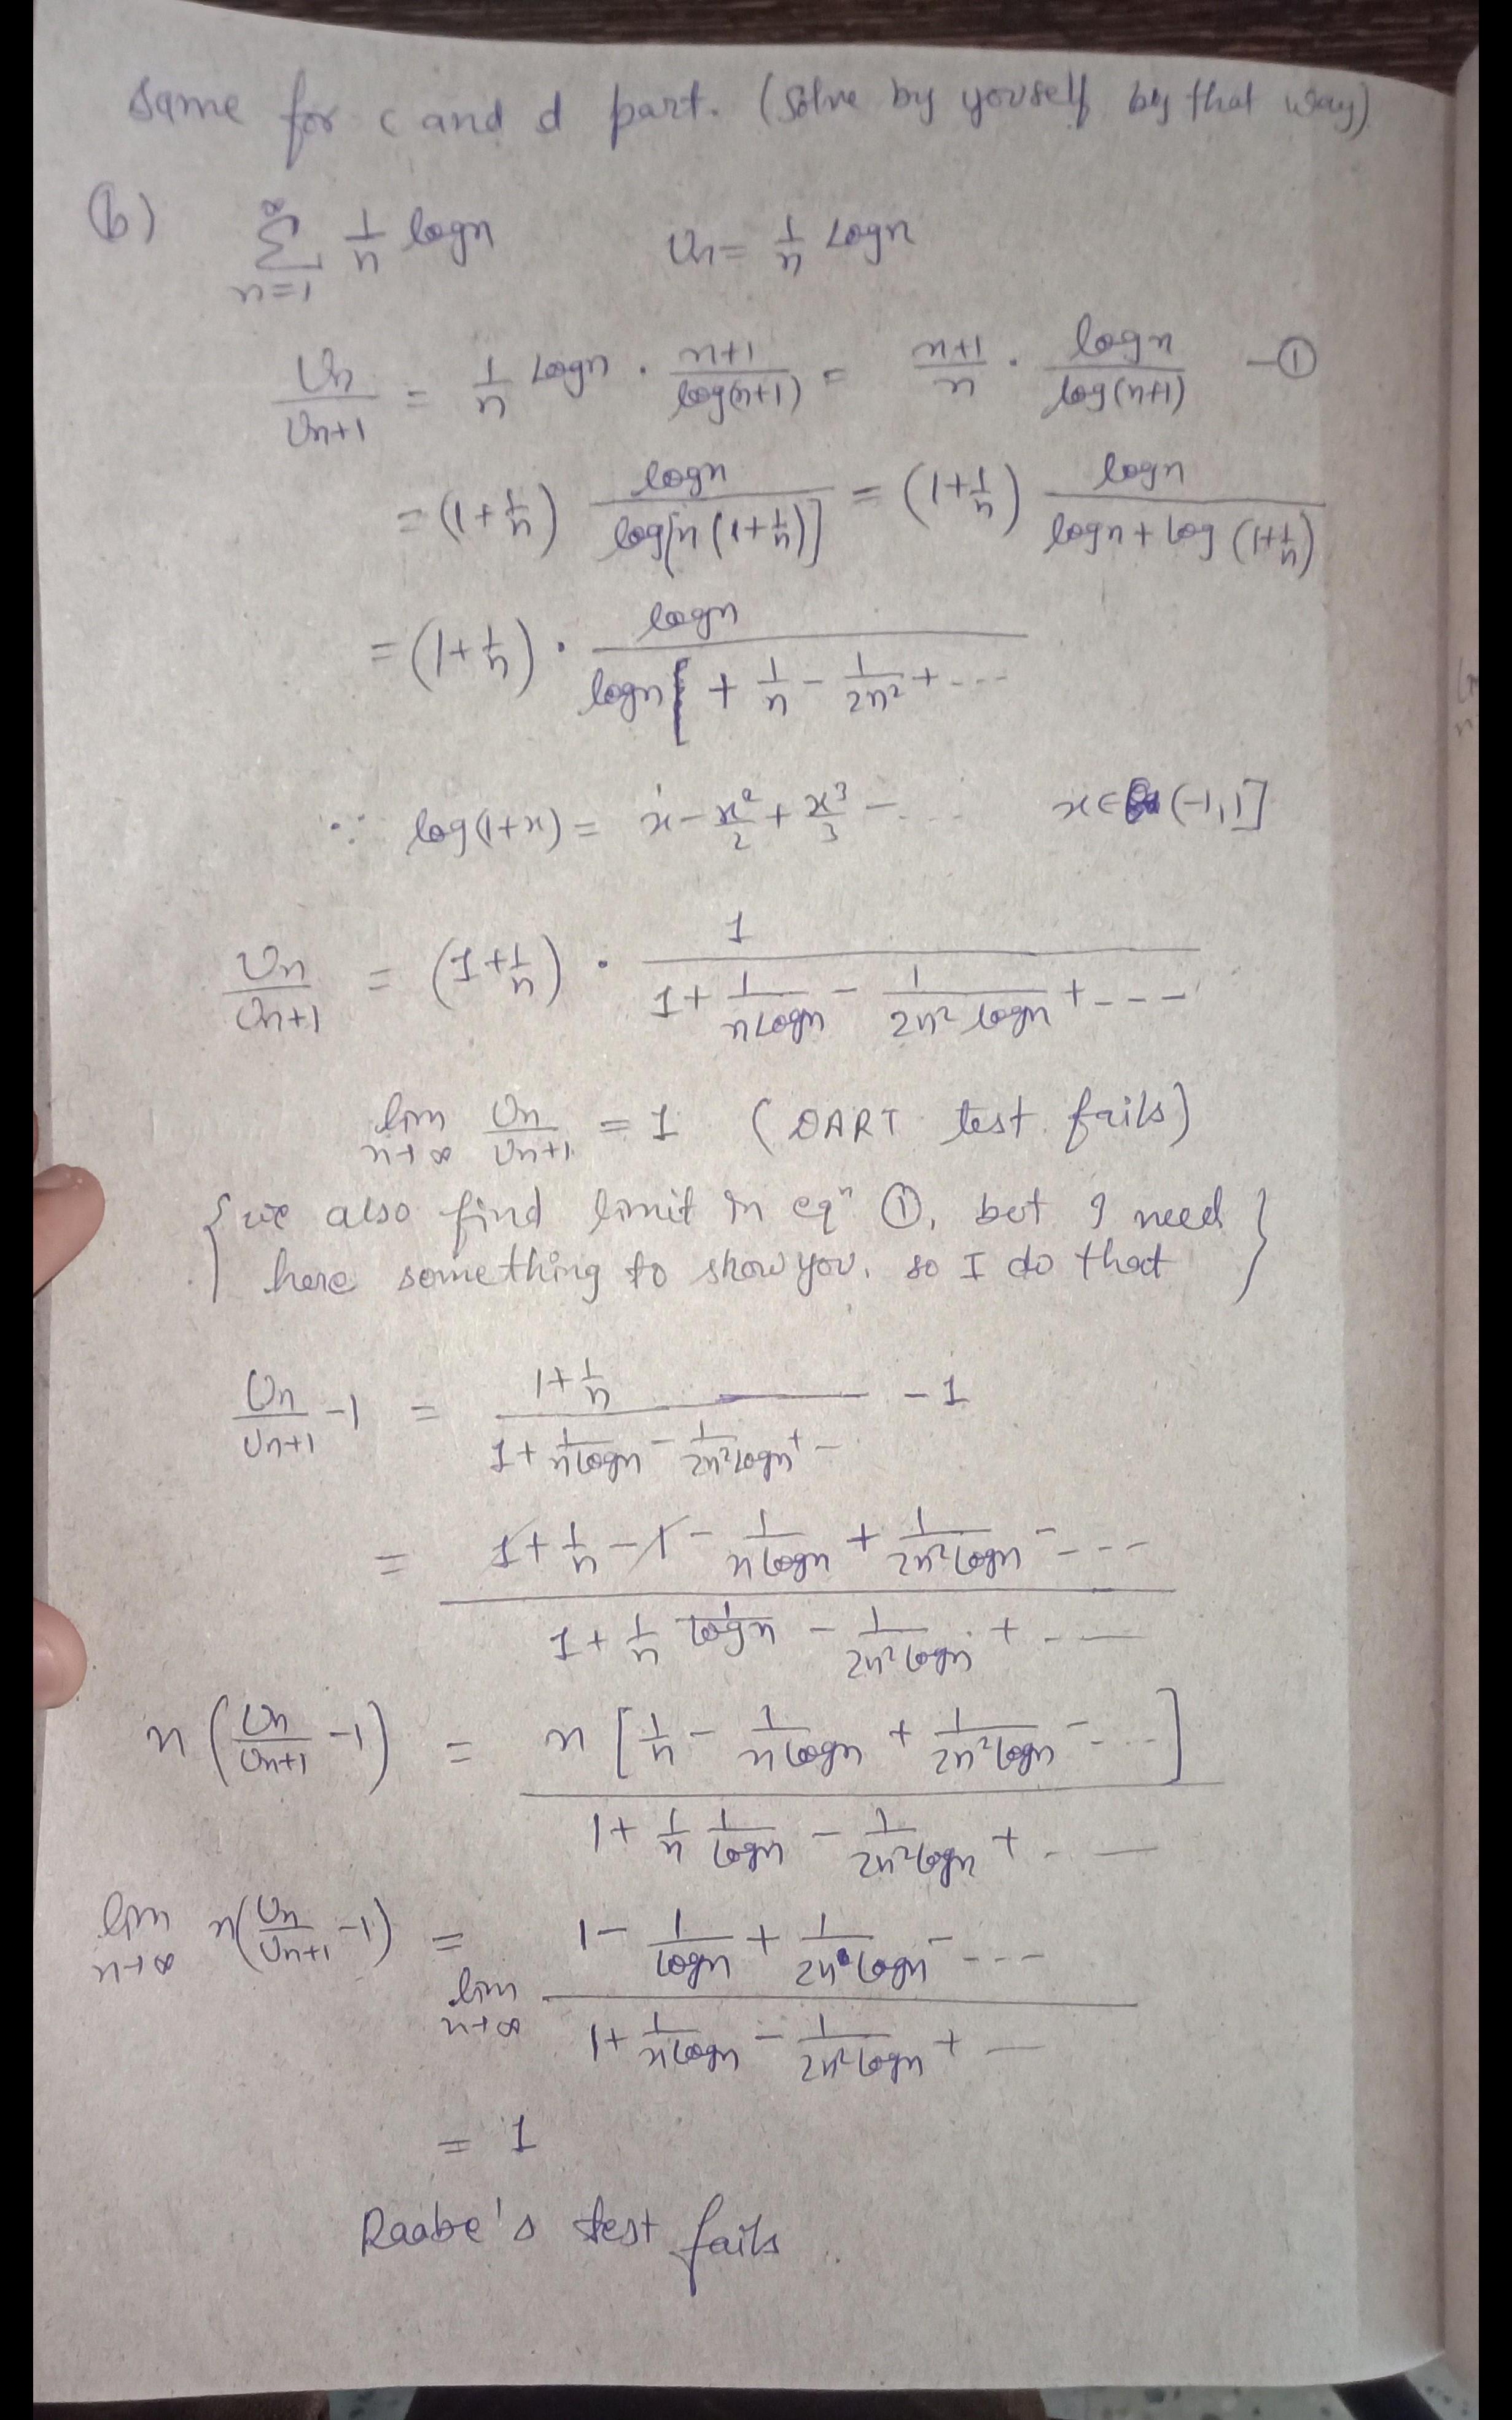 same for c and d part. (solve by youself by that way)
(b) ∞∑n=1 1/n logn Un = 1/n Logn
Un/Un+1 = 1/n Logn . n+1/log(n+1) = n+1/n . logn/log(n+1) - ①
= (1+1/n) logn/log[n(1+1/n)] = (1+1/n) logn/logn + log(1+1/n)
= (1+1/n) . logn/logn + 1/n - 1/2n² + ...
∵ log(1+x) = x - x²/2 + x³/3 - ... x∈ (-1,1]
Un/Un+1 = (1+1/n) . 1/1 + 1/nLogn - 1/2n² logn + ---
lim n→∞ Un/Un+1 = 1 (DART test fails)
{we also find limit in eqⁿ ①, but I need}
here something to show you, so I do that
Un/Un+1 -1 = 1+1/n/1+1/nlogn - 1/2n²logn + - -1
= 1+1/n -1 - 1/nlogn + 1/2n²logn - ---/1+1/n 1/logn - 1/2n²logn + . —
n(Un/Un+1 -1) = n[1/n - 1/nlogn + 1/2n²logn - ...]/1+1/n 1/logn - 1/2n²logn + . —
lim n→∞ n(Un/Un+1 -1) = lim n→∞ 1- 1/logn + 1/2n logn - ---/1+1/nlogn - 1/2n²logn + —
= 1
Raabe's test fails.